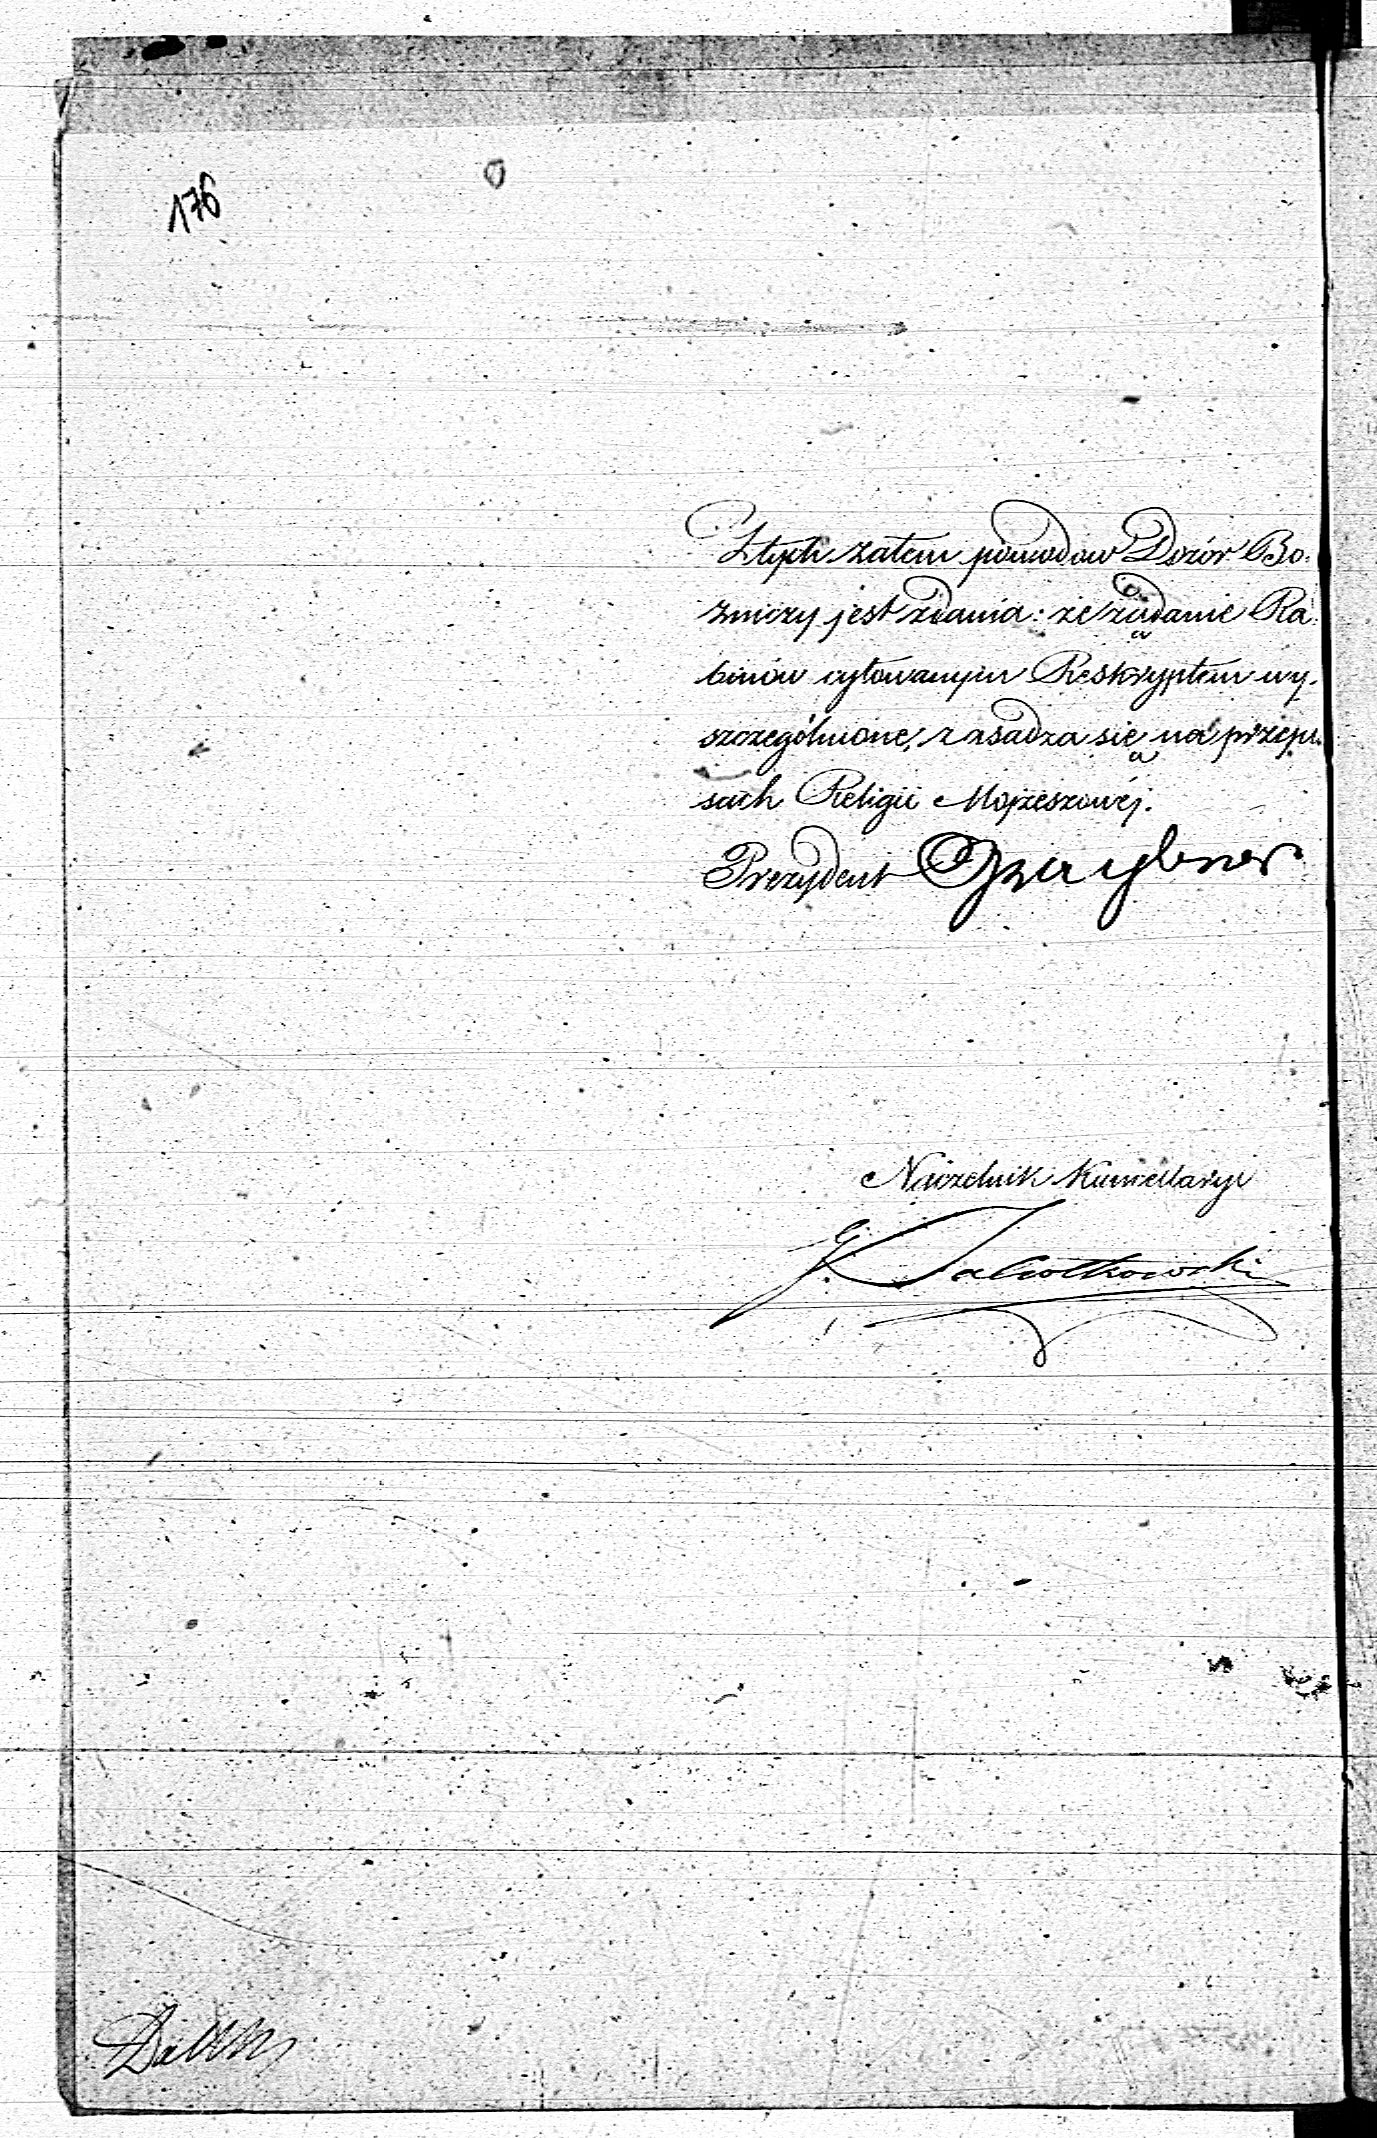 176
Z tych zatem powodow Dozór Bo-
żniczy jest zdania: że żądanie Ra-
binów cytowanym Reskryptem wy-
szczególnione, zasadza się na przepi-
sach Religii Mojżeszowéj.
Prezydent
Naczelnik Kancellaryi